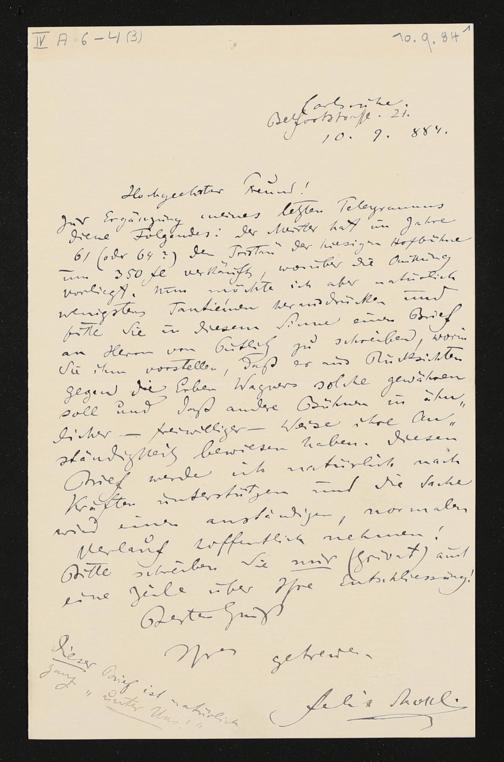 IV A 6-4(3)
10.9.84¹
Carlsruhe.
Belfortstraße. 21.
10. 9. 884.
Hochgeehrter Freund!
Zur Ergänzung meines letzten Telegramms
diene Folgendes: der Meister hat im Jahre
61 (oder 64?) den Tristan der hiesigen Hofbühne
um 350 fl verkauft, worüber die Quittung
vorliegt. Nun möchte ich aber natürlich
wenigstens Tantièmen herausdrücken und
bitte Sie in diesem Sinne einen Brief
an Herrn von Putlitz zu schreiben, worin
Sie ihm vorstellen, daß er aus Rücksichten
gegen die Erben Wagners solche gewähren
soll und daß andere Bühnen in ähn„
licher – freiwilliger – Weise ihre An„
ständigkeit bewiesen haben. Diesen
Brief werde ich natürlich nach
Kräften unterstützen und die Sache
wird einen anständigen, normalen
Verlauf hoffentlich nehmen!
Bitte schreiben Sie mir (privat) auch
eine Zeile über Ihre Entschliessung!
Besten Gruß
Ihres
getreuen
Felix Mottl.
Dieser Brief ist natürlich
ganz „unter Uns!“